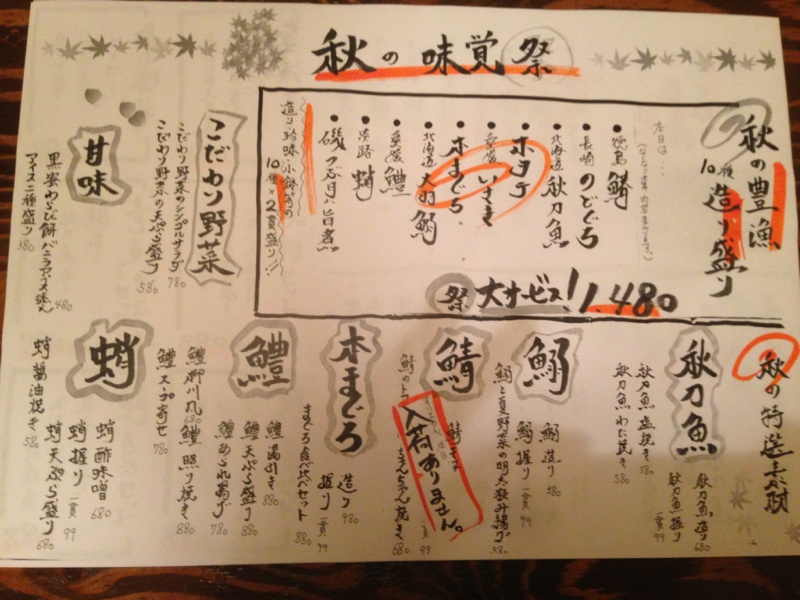 秋の味覚祭
秋の豊漁
10種造り盛り
本日は…
徳島 鱧
長崎 のどぐろ
北海道 秋刀魚
ホタテ
愛媛 いさき
本まぐろ
北海道 大羽鰯
愛媛 鱧
淡路 蛸
磯つぶ貝旨煮
造り珍味小鉢等の
10種2貫盛り!!
祭 大サービス! 1,480
秋の特選素材
秋刀魚
秋刀魚造り 680
秋刀魚握り 一貫99
秋刀魚塩焼き 580
秋刀魚わた焼き 580
鰯
鰯造り 580
鰯握り 一貫99
鰯と夏野菜の明太挟み揚げ 580
鯖
入荷ありません。
ちゃんちゃん焼き 680
本まぐろ
造り 980
握り 一貫99
まぐろ食べ比べセット 880
鱧
鱧湯引き 880
鱧天ぷら盛り 880
鱧あられ揚げ 780
鱧照り焼き 880
鱧柳川風 680
鱧スープ寄せ 780
蛸
蛸酢味噌 680
蛸握り 一貫99
蛸天ぷら盛り 680
蛸醤油焼き 580
こだわり野菜
こだわり野菜のシンプルサラダ 780
こだわり野菜の天ぷら盛り 580
甘味
黒蜜わらび餅バニラアイス添え 480
アイス二種盛り 380